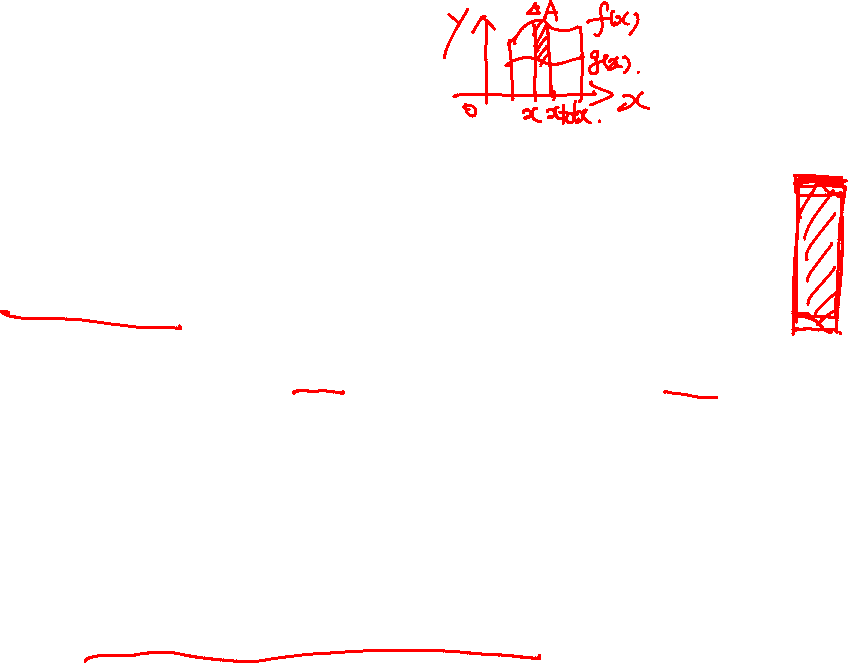 Y ΔA f(x)
g(x).
0 x x+dx. x